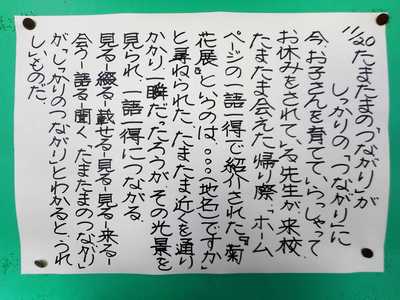 11/20 たまたまの「つながり」が
しっかりの「つながり」に
今、お子さんを育てていらっしゃって
お休みをされている先生が来校
たまたま会えた帰り際、「ホーム
ページの一語一得で紹介された『菊
花展』というのは、○○○(地名)ですか」
と尋ねられた。たまたま近くを通り
かかり、一瞬だったろうが、その光景を
見られ、一語一得につながる。
見る-綴る-載せる-見る-見る-来る-
会う-語る-聞く、「たまたまのつながり」
が「しっかりのつながり」とわかると、うれ
しいものだ。